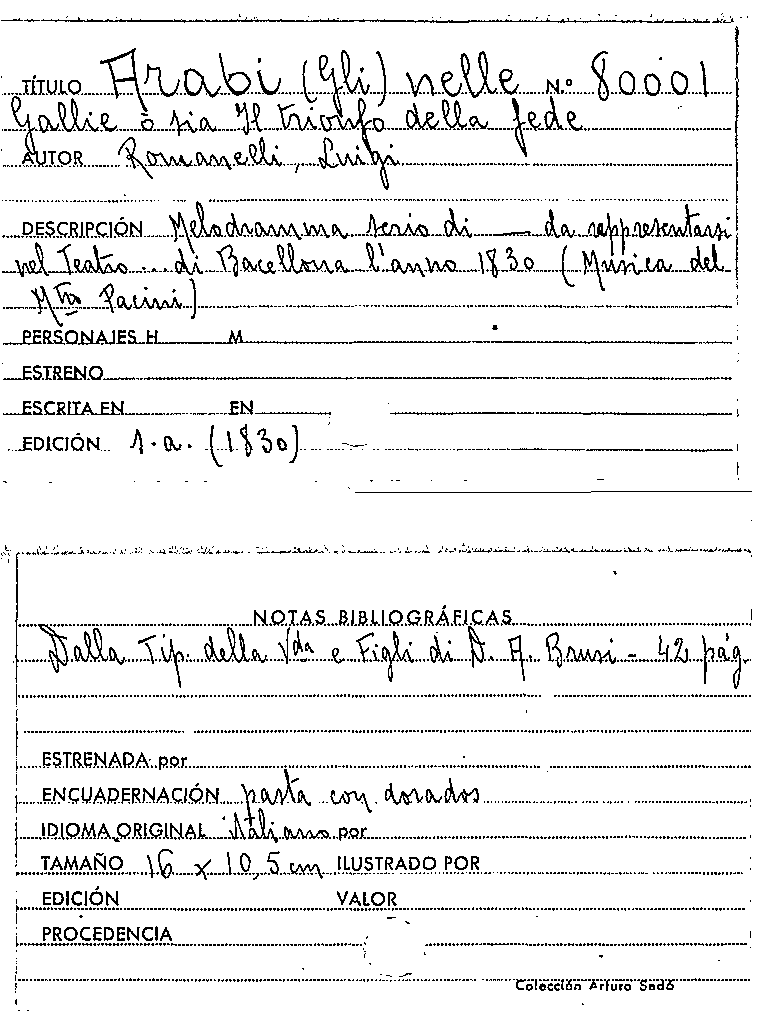 TÍTULO Arabi (Gli) nelle N.º 80001
Gallie ò sia Il trionfo della fede
AUTOR Romanelli, Luigi
DESCRIPCIÓN Melodramma serio di — da rappresentarsi
nel Teatro ... di Bacellona l'anno 1830 (Musica del
Mtro Pacini)
PERSONAJES H M
ESTRENO
ESCRITA EN EN
EDICIÓN 1.a. (1830)
NOTAS BIBLIOGRÁFICAS
Dalla Tip. della Vda e Figli di D. A. Brusi - 42 pág.
ESTRENADA por
ENCUADERNACIÓN pasta con dorados
IDIOMA ORIGINAL italiano por
TAMAÑO 16 x 10,5 cm ILUSTRADO POR
EDICIÓN VALOR
PROCEDENCIA
Colección Arturo Sedó